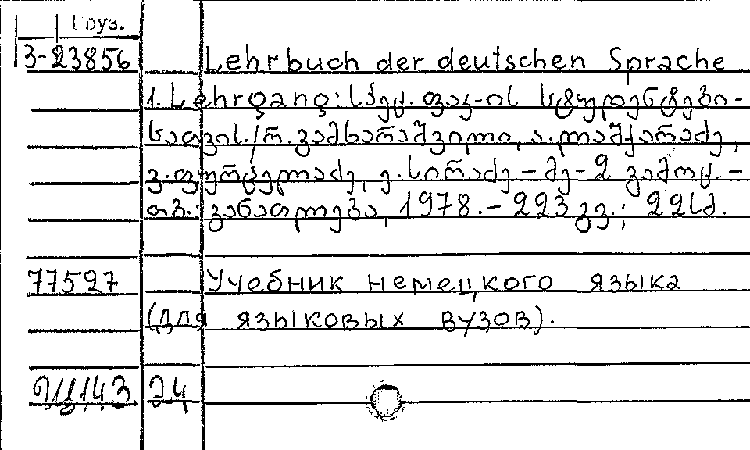 Груз.
3-23856 Lehrbuch der deutschen Sprache
1. Lehrgang: სპეც. ფაკ-ის სტუდენტები-
სათვის./რ. გამხარაშვილი, ა. ლაშქარაძე,
ვ. ფურცელაძე, ე. სირაძე – მე-2 გამოც. –
თბ.: განათლება, 1978. – 223 გვ.; 22სმ.
77527 Учебник немецкого языка
(для языковых вузов).
24